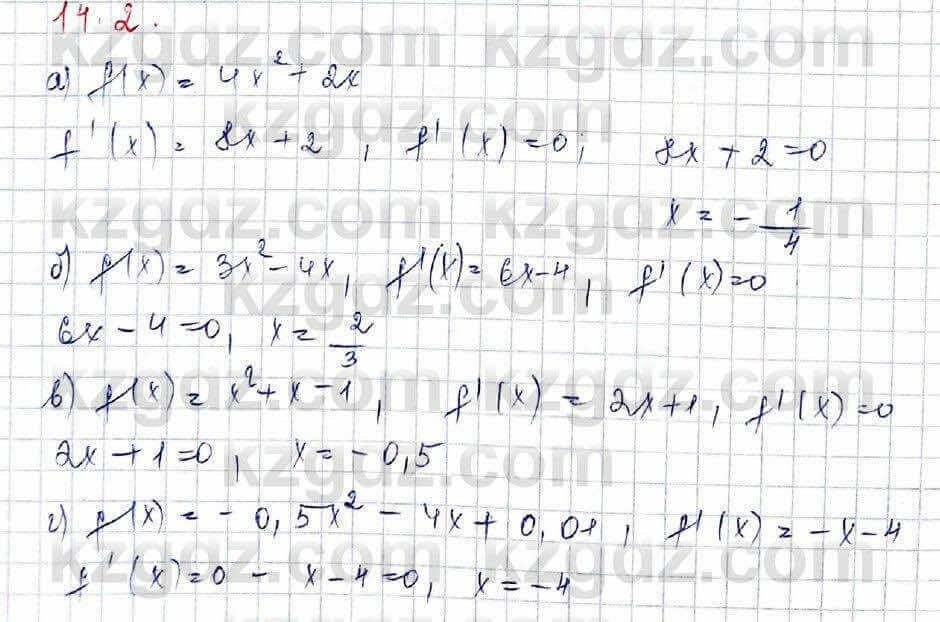 14.2.
kzgdz.com kzgdz.com
а) f(x) = 4x² + 2x
kzgdz.com
f'(x) = 8x + 2, f'(x) = 0; 8x + 2 = 0
kzgdz.com kzgdz.com
x = - 1/4
б) f(x) = 3x² - 4x, f'(x) = 6x - 4, f'(x) = 0
kzgdz.com
6x - 4 = 0, x = 2/3
kzgdz.com kzgdz.com
в) f(x) = x² + x - 1, f'(x) = 2x + 1, f'(x) = 0
2x + 1 = 0, x = - 0,5
kzgdz.com
г) f(x) = - 0,5x² - 4x + 0,01, f'(x) = - x - 4
kzgdz.com kzgdz.com
f'(x) = 0 - x - 4 = 0, x = - 4